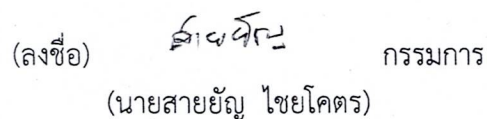 (ลงชื่อ) สายยัญ กรรมการ
(นายสายยัญ ไชยโคตร)